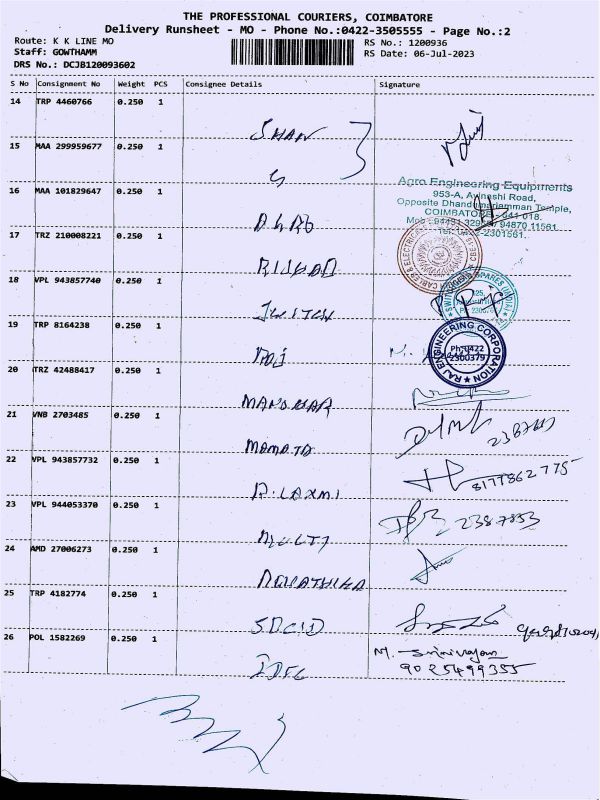 THE PROFESSIONAL COURIERS, COIMBATORE
Delivery Runsheet - MO - Phone No.:0422-3505555 - Page No.:2
Route: K K LINE MO
Staff: GOWTHAMM
DRS No.: DCJB120093602
RS No.: 1200936
RS Date: 06-Jul-2023
S No Consignment No Weight PCS Consignee Details Signature
14 TRP 4460766 0.250 1
SHAN
15 MAA 299959677 0.250 1
16 MAA 101829647 0.250 1
Agro Engineering Equipments
953-A, Avinashi Road,
COIMBATORE - 641 018.
17 TRZ 210008221 0.250 1
18 VPL 943857740 0.250 1
SWITCH
19 TRP 8164238 0.250 1
RAJ ENGINEERING CORPORATION
Ph:0422
2300379
20 TRZ 42488417 0.250 1
MANOHAR
21 VNB 2703485 0.250 1
MAMATA
22 VPL 943857732 0.250 1
8177862775
R. LAXMI
23 VPL 944053370 0.250 1
2387853
MULTI
24 AMD 27006273 0.250 1
25 TRP 4182774 0.250 1
26 POL 1582269 0.250 1
M. Srinivasan
9025499355